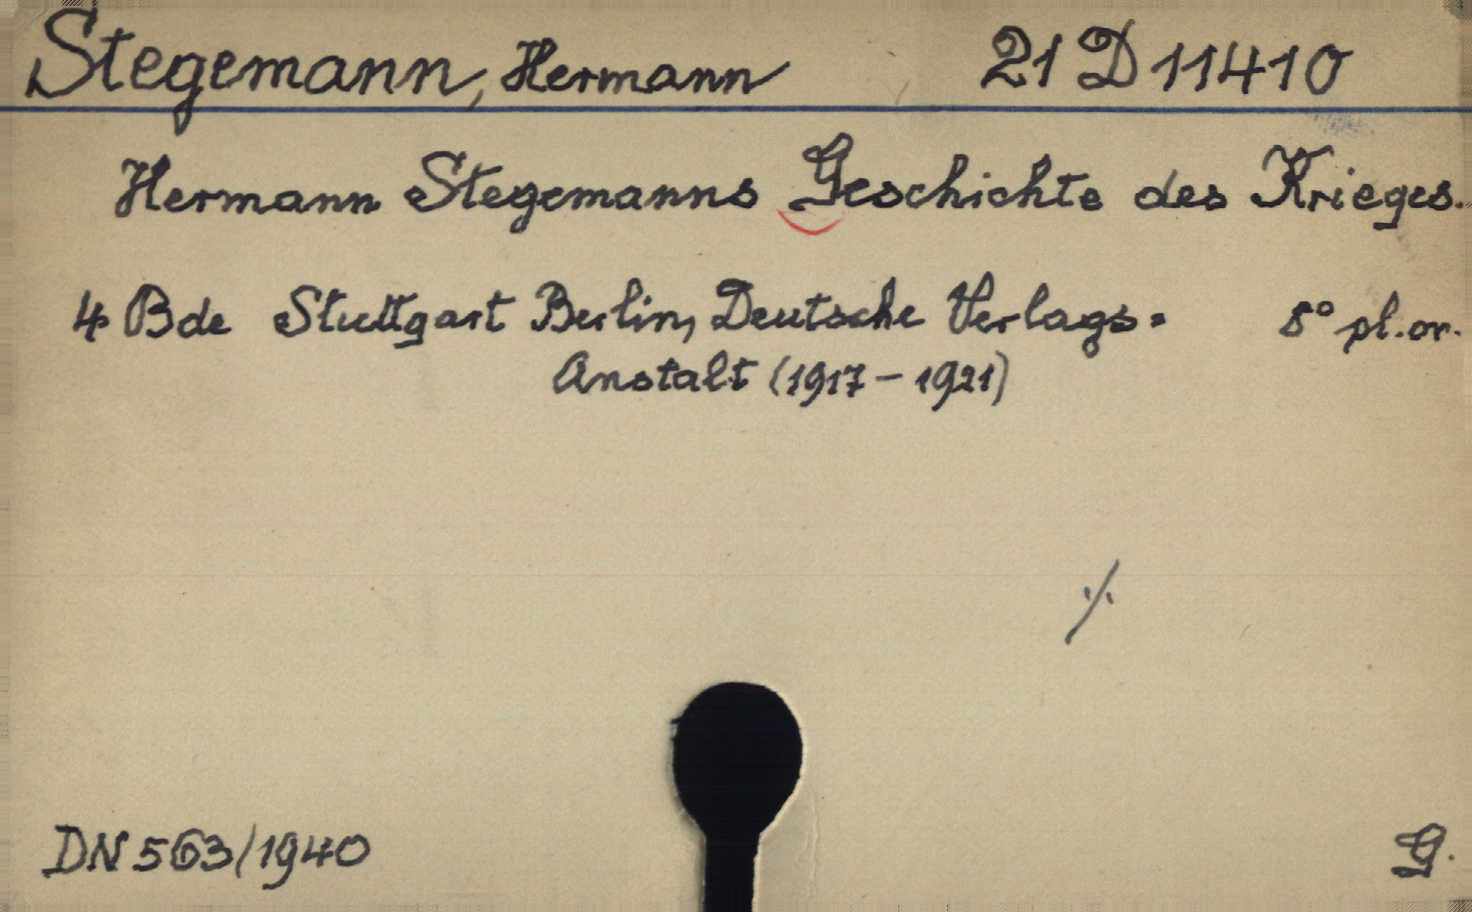 Stegemann, Hermann 21 D 11410
Hermann Stegemanns Geschichte des Krieges.
4 Bde Stuttgart Berlin, Deutsche Verlags= 8° pl. or.
Anstalt (1917 - 1921)
·/·
DN 563/1940 G.